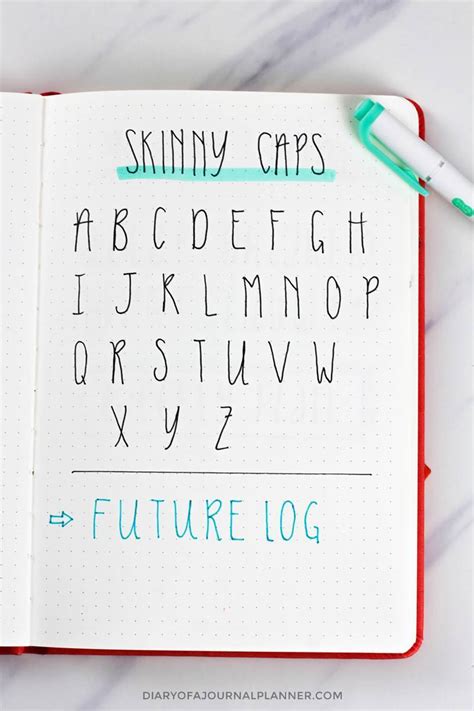 SKINNY CAPS
A B C D E F G H
I J K L M N O P
Q R S T U V W
X Y Z
⇨ FUTURE LOG
DIARYOFAJOURNALPLANNER.COM